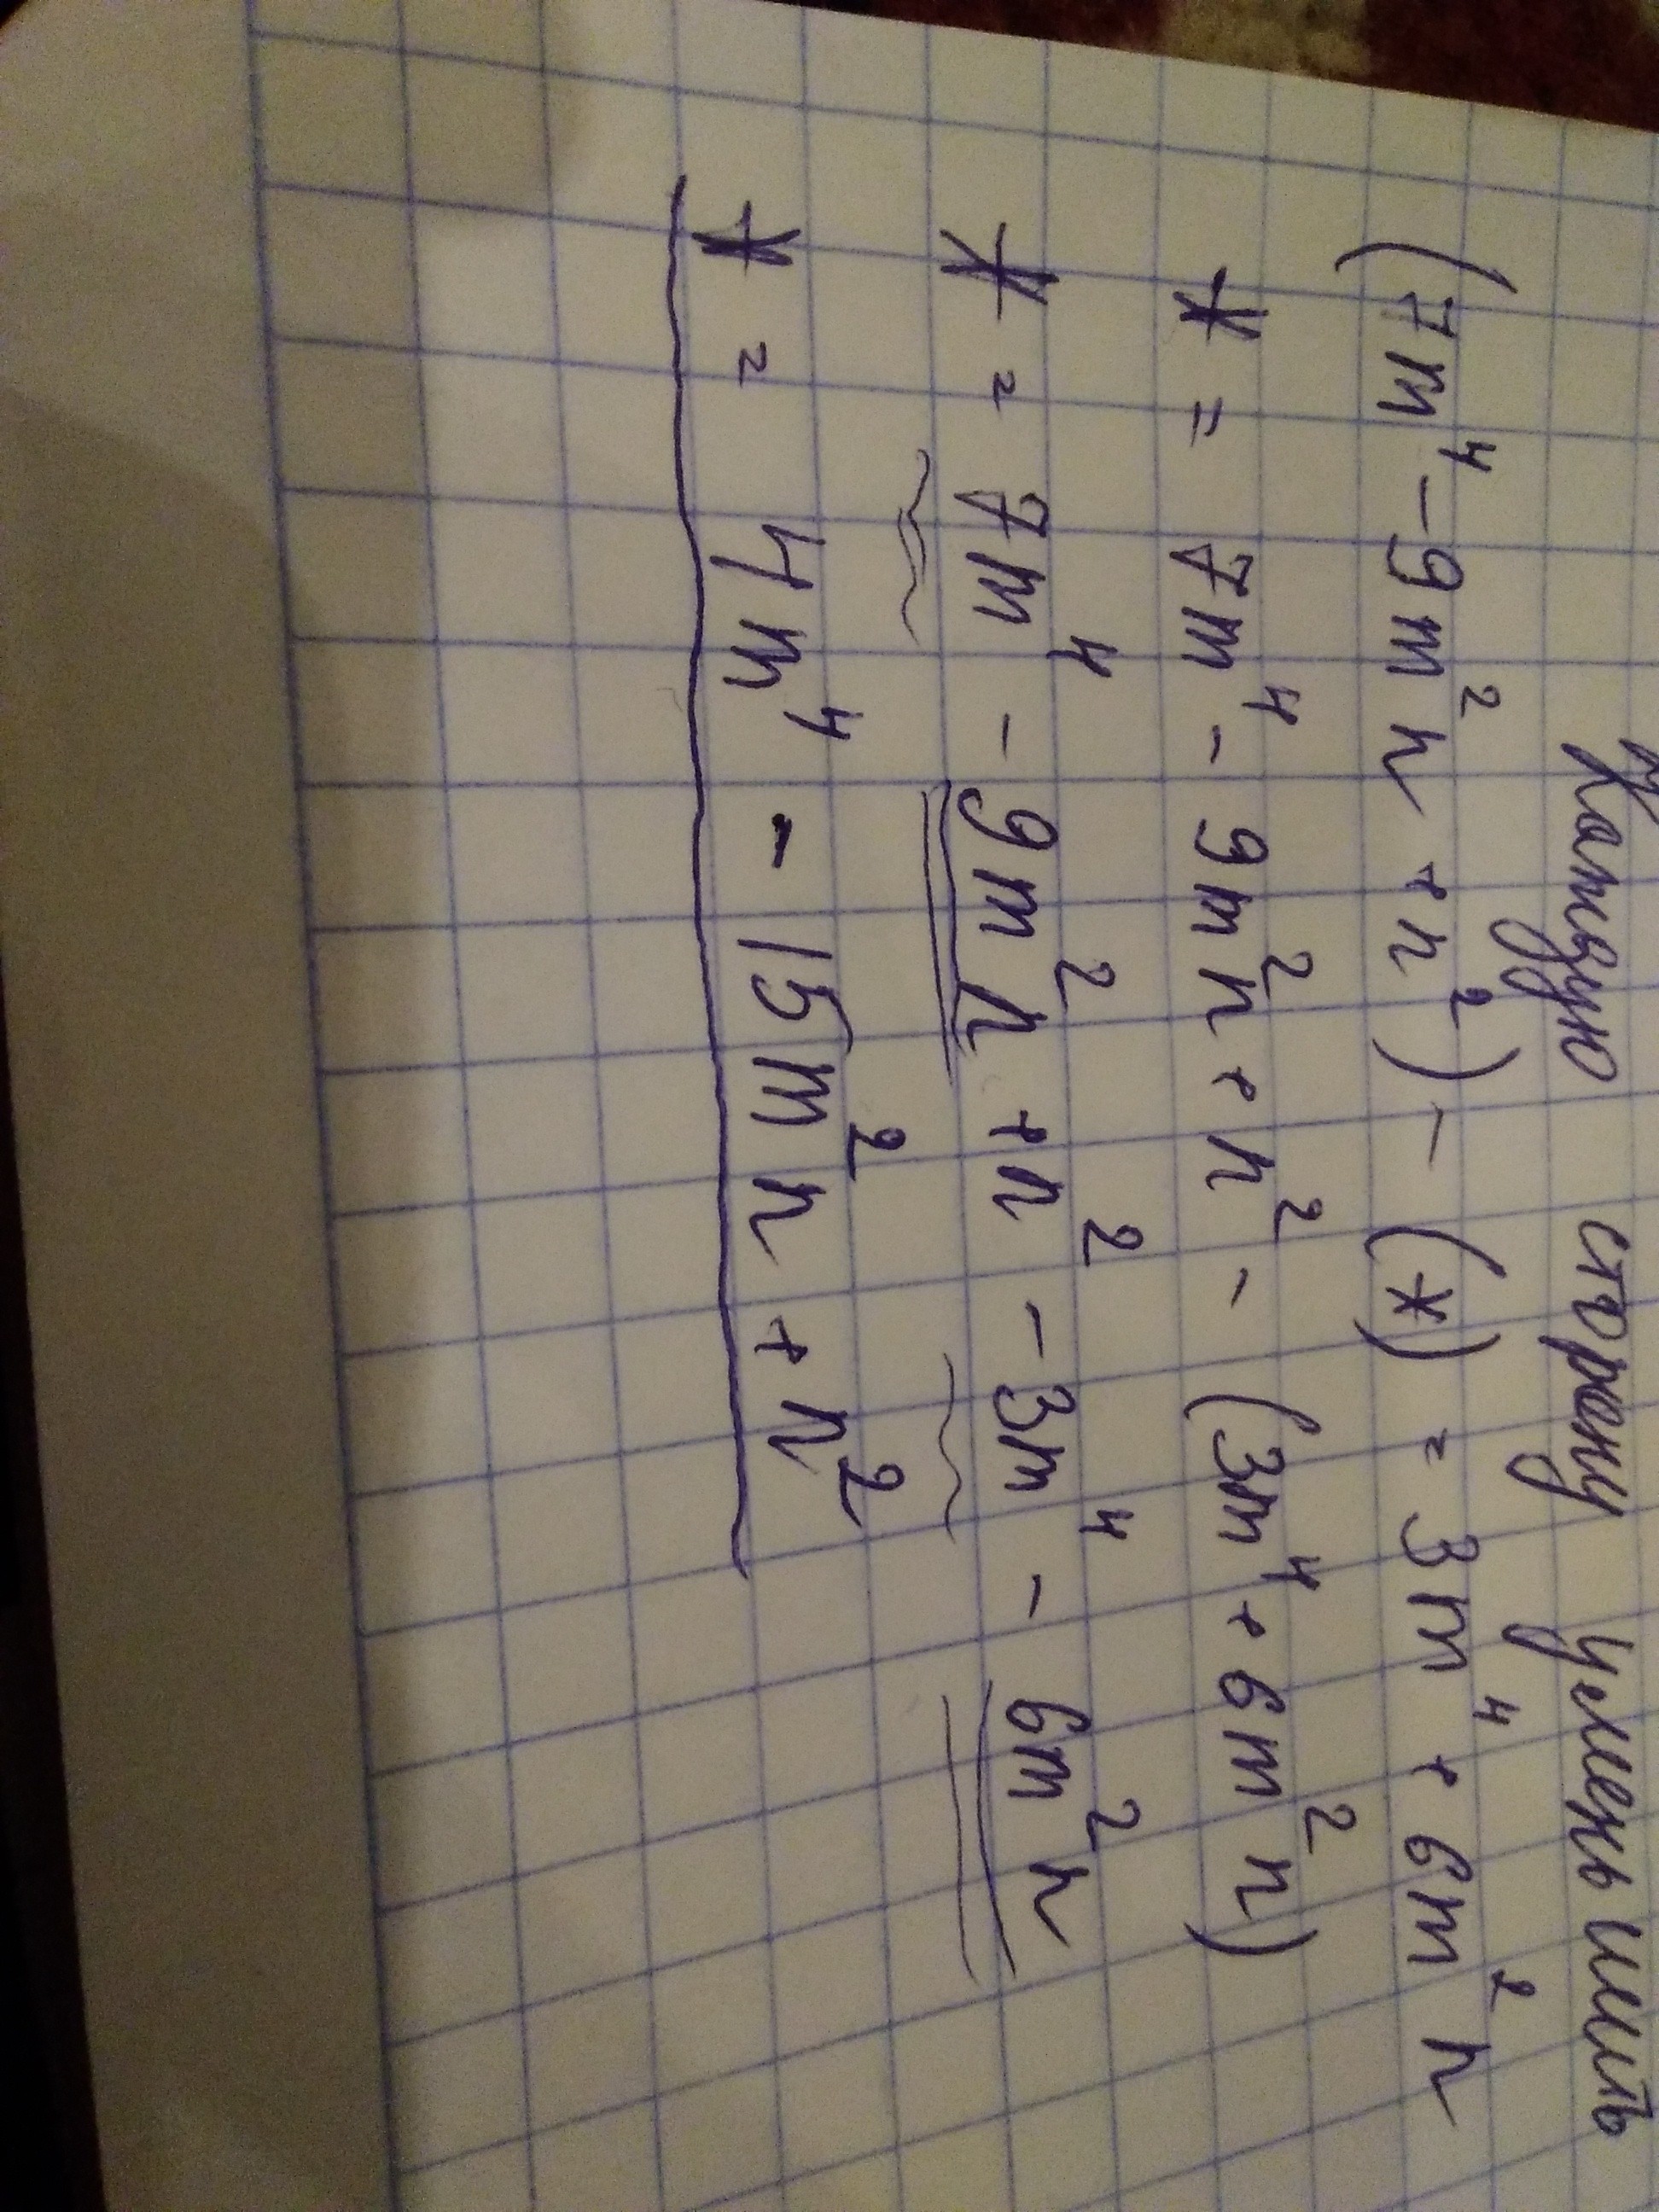 Каждую сторону уменьшить
(7m⁴ - 9m²n + n²) - (*) = 3m⁴ + 6m²n
* = 7m⁴ - 9m²n + n² - (3m⁴ + 6m²n)
* = 7m⁴ - 9m²n + n² - 3m⁴ - 6m²n
* = 4m⁴ - 15m²n + n²